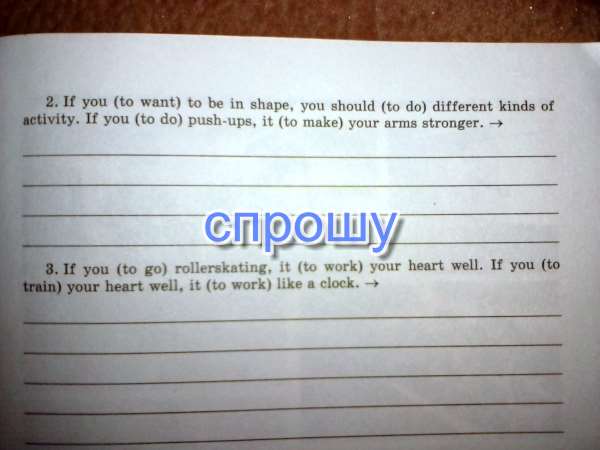 2. If you (to want) to be in shape, you should (to do) different kinds of
activity. If you (to do) push-ups, it (to make) your arms stronger. →
спрошу
3. If you (to go) rollerskating, it (to work) your heart well. If you (to
train) your heart well, it (to work) like a clock. →